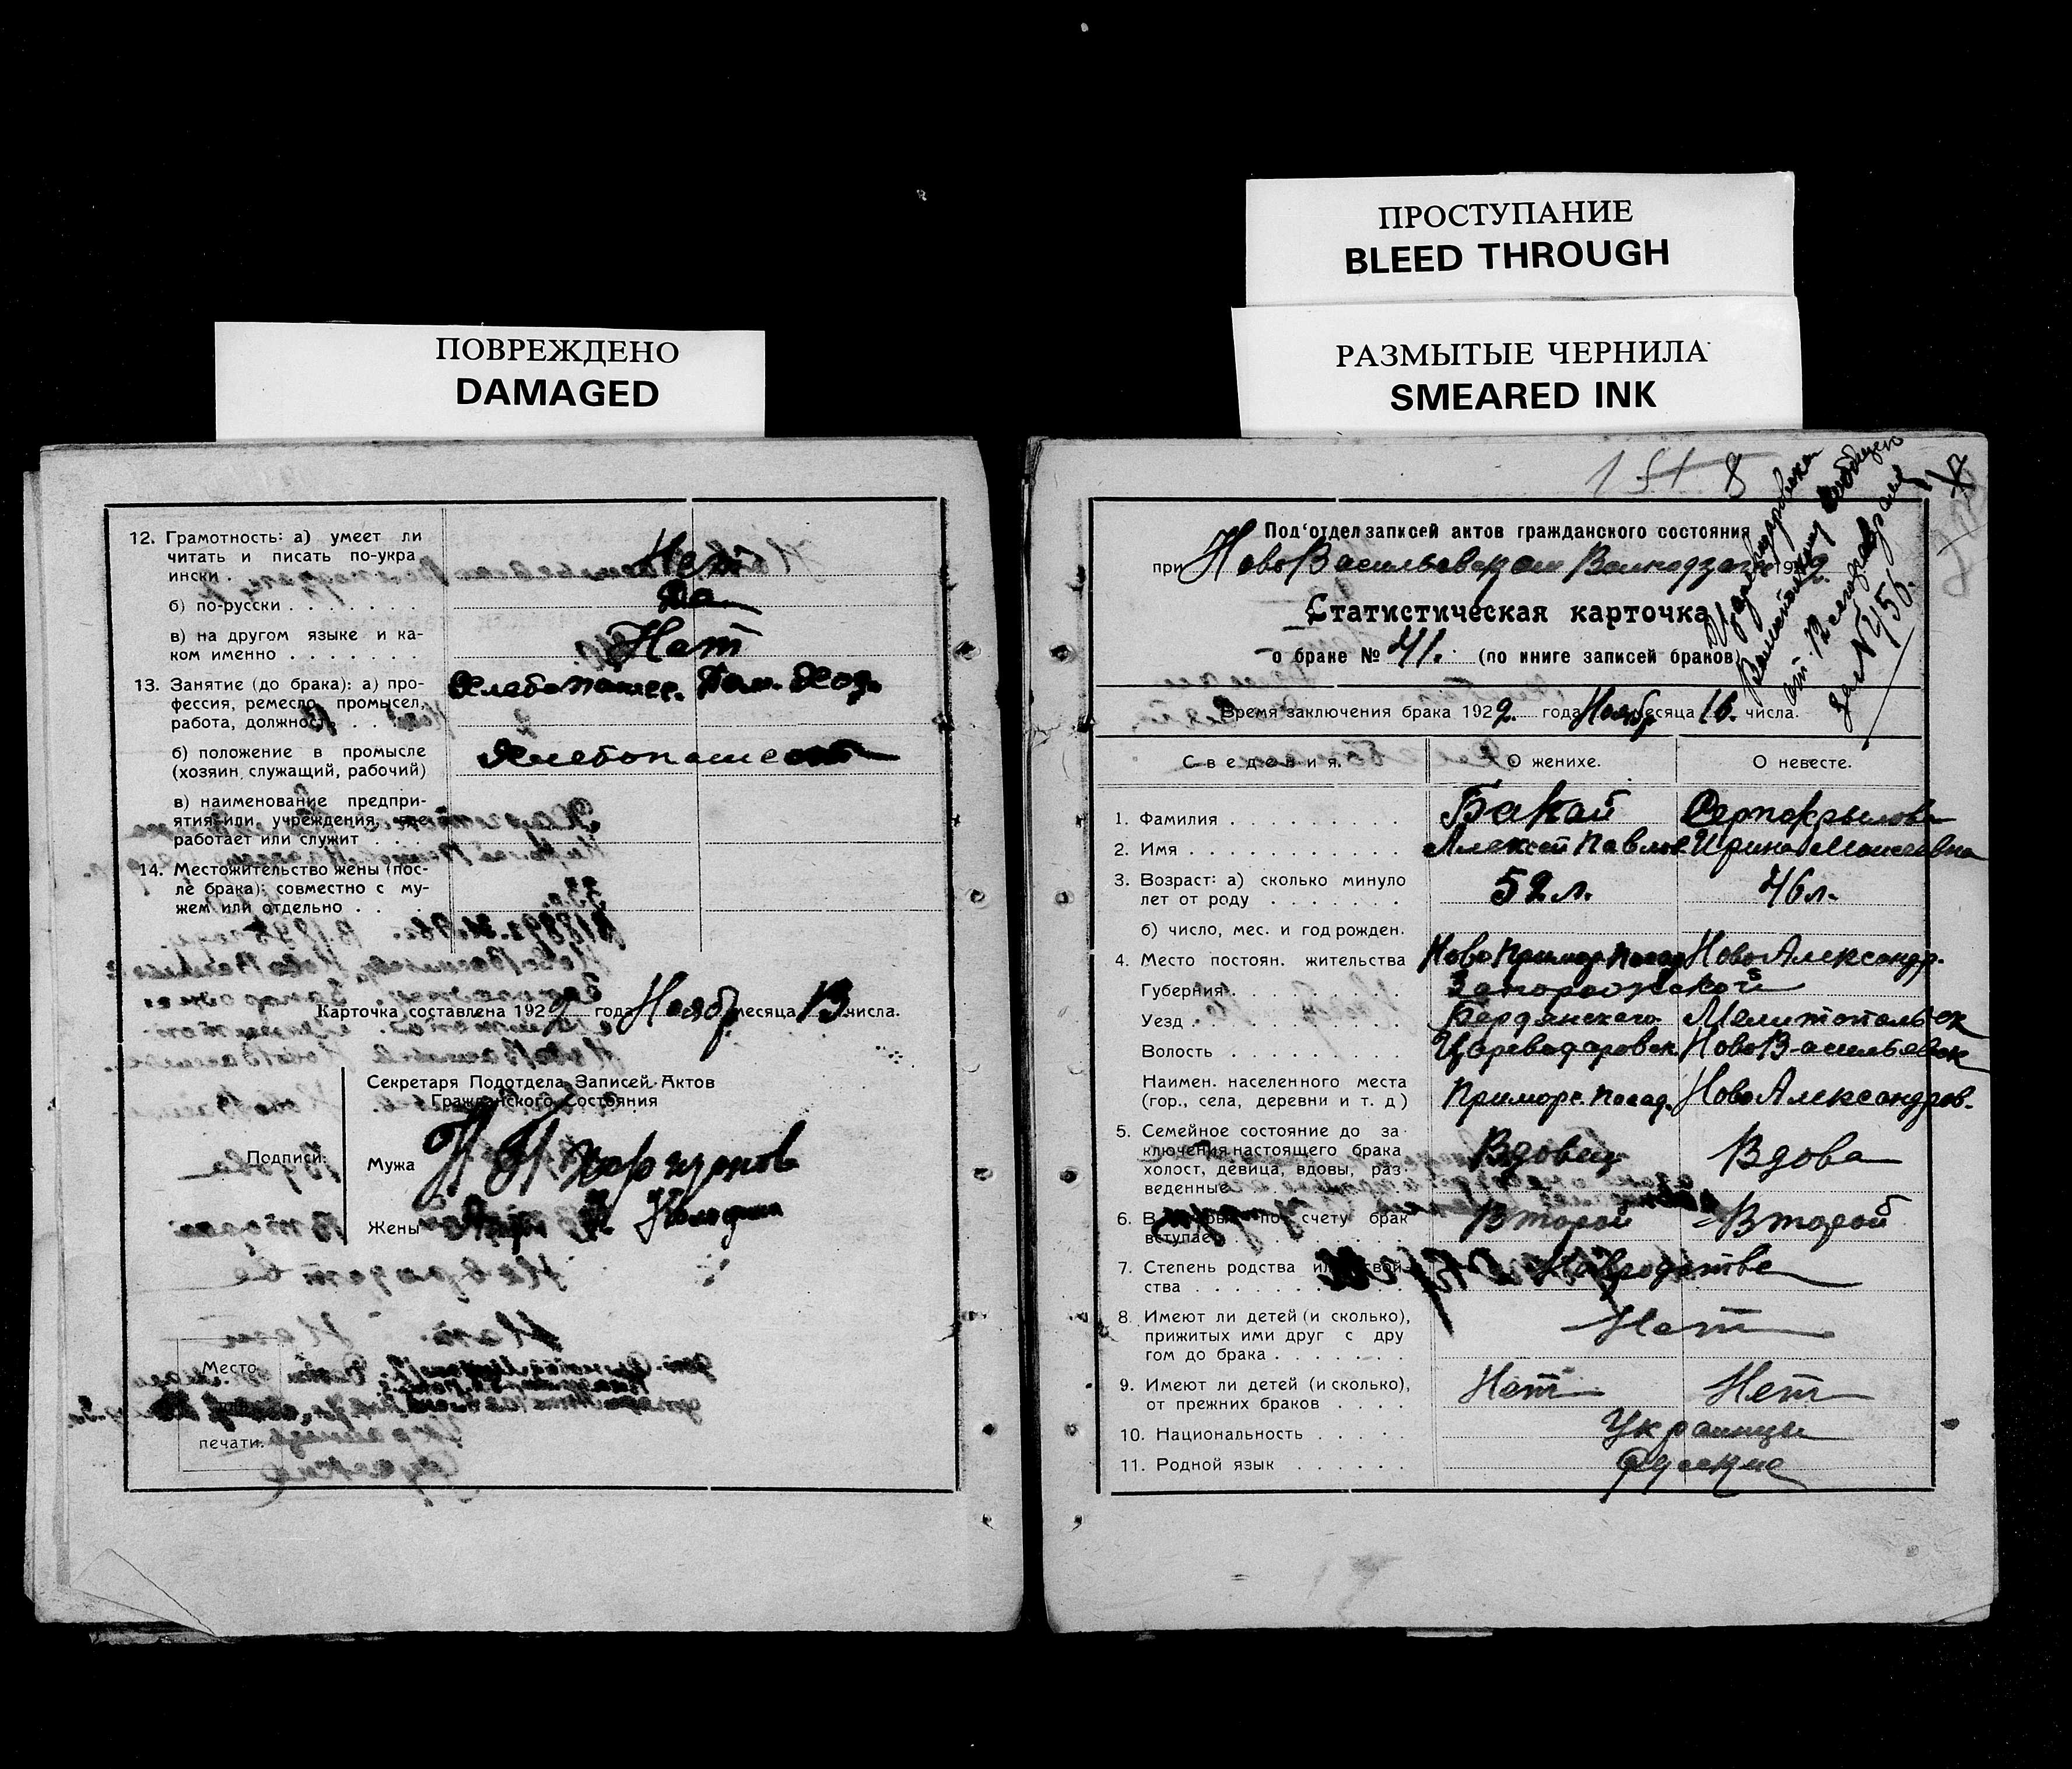 ПОВРЕЖДЕНО
DAMAGED
12. Грамотность: а) умеет ли
читать и писать по-укра
ински . Нет
б) по-русски . . . . . . . Да
в) на другом языке и ка-
ком именно . . . . . . . Нет
13. Занятие (до брака): а) про-
фессия, ремесло, промысел, Хлебопашес. Дом. Хоз.
работа, должность . . .
б) положение в промысле Хлебопашест
(хозяин, служащий, рабочий)
в) наименование предпри-
ятия или учреждения, где
работает или служит . . .
14. Местожительство жены (пос-
ле брака): совместно с му-
жем или отдельно . . . .
Карточка составлена 1922 года Нояб месяца 13 числа.
Секретаря Подотдела Записей Актов
Гражданского Состояния
Подписи:
Мужа
Жены
Место
печати.
ПРОСТУПАНИЕ
BLEED THROUGH
РАЗМЫТЫЕ ЧЕРНИЛА
SMEARED INK
8
Под'отдел записей актов гражданского состояния
при НовоВасильевском 192
Статистическая карточка
о браке № 41. (по книге записей браков)
№ 456.
Время заключения брака 1922. года Нояб месяца 16. числа.
Сведения. О женихе. О невесте.
1. Фамилия . . . . . . . . . Бакай Серпокрылова
2. Имя . . . . . . . . . . . Алексей Павлов Ирина Моисеевна
3. Возраст: а) сколько минуло
лет от роду . . . . . . . 52 л. 46 л.
б) число, мес. и год рожден.
4. Место постоян. жительства Ново Примор Посад НовоАлександр.
Губерния . . . . . . . . . Запорожской
Уезд . . . . . . . . . . . Бердянского Мелитопольск
Волость . . . . . . . . . Цареводаровск НовоВасильевск
Наимен. населенного места
(гор., села, деревни и т. д) Приморс. Посад. НовоАлександров.
5. Семейное состояние до за-
ключения настоящего брака Вдовец Вдова
холост, девица, вдовы, раз-
веденные
6. В по счету брак Второй Второй
вступает
7. Степень родства или свой- Невродстве
ства . . . . . . . . . . .
8. Имеют ли детей (и сколько),
прижитых ими друг с дру Нет
гом до брака . . . . . . .
9. Имеют ли детей (и сколько), Нет Нет
от прежних браков . . . .
10. Национальность . . . . . Украинцы
11. Родной язык . . . . . . Русские